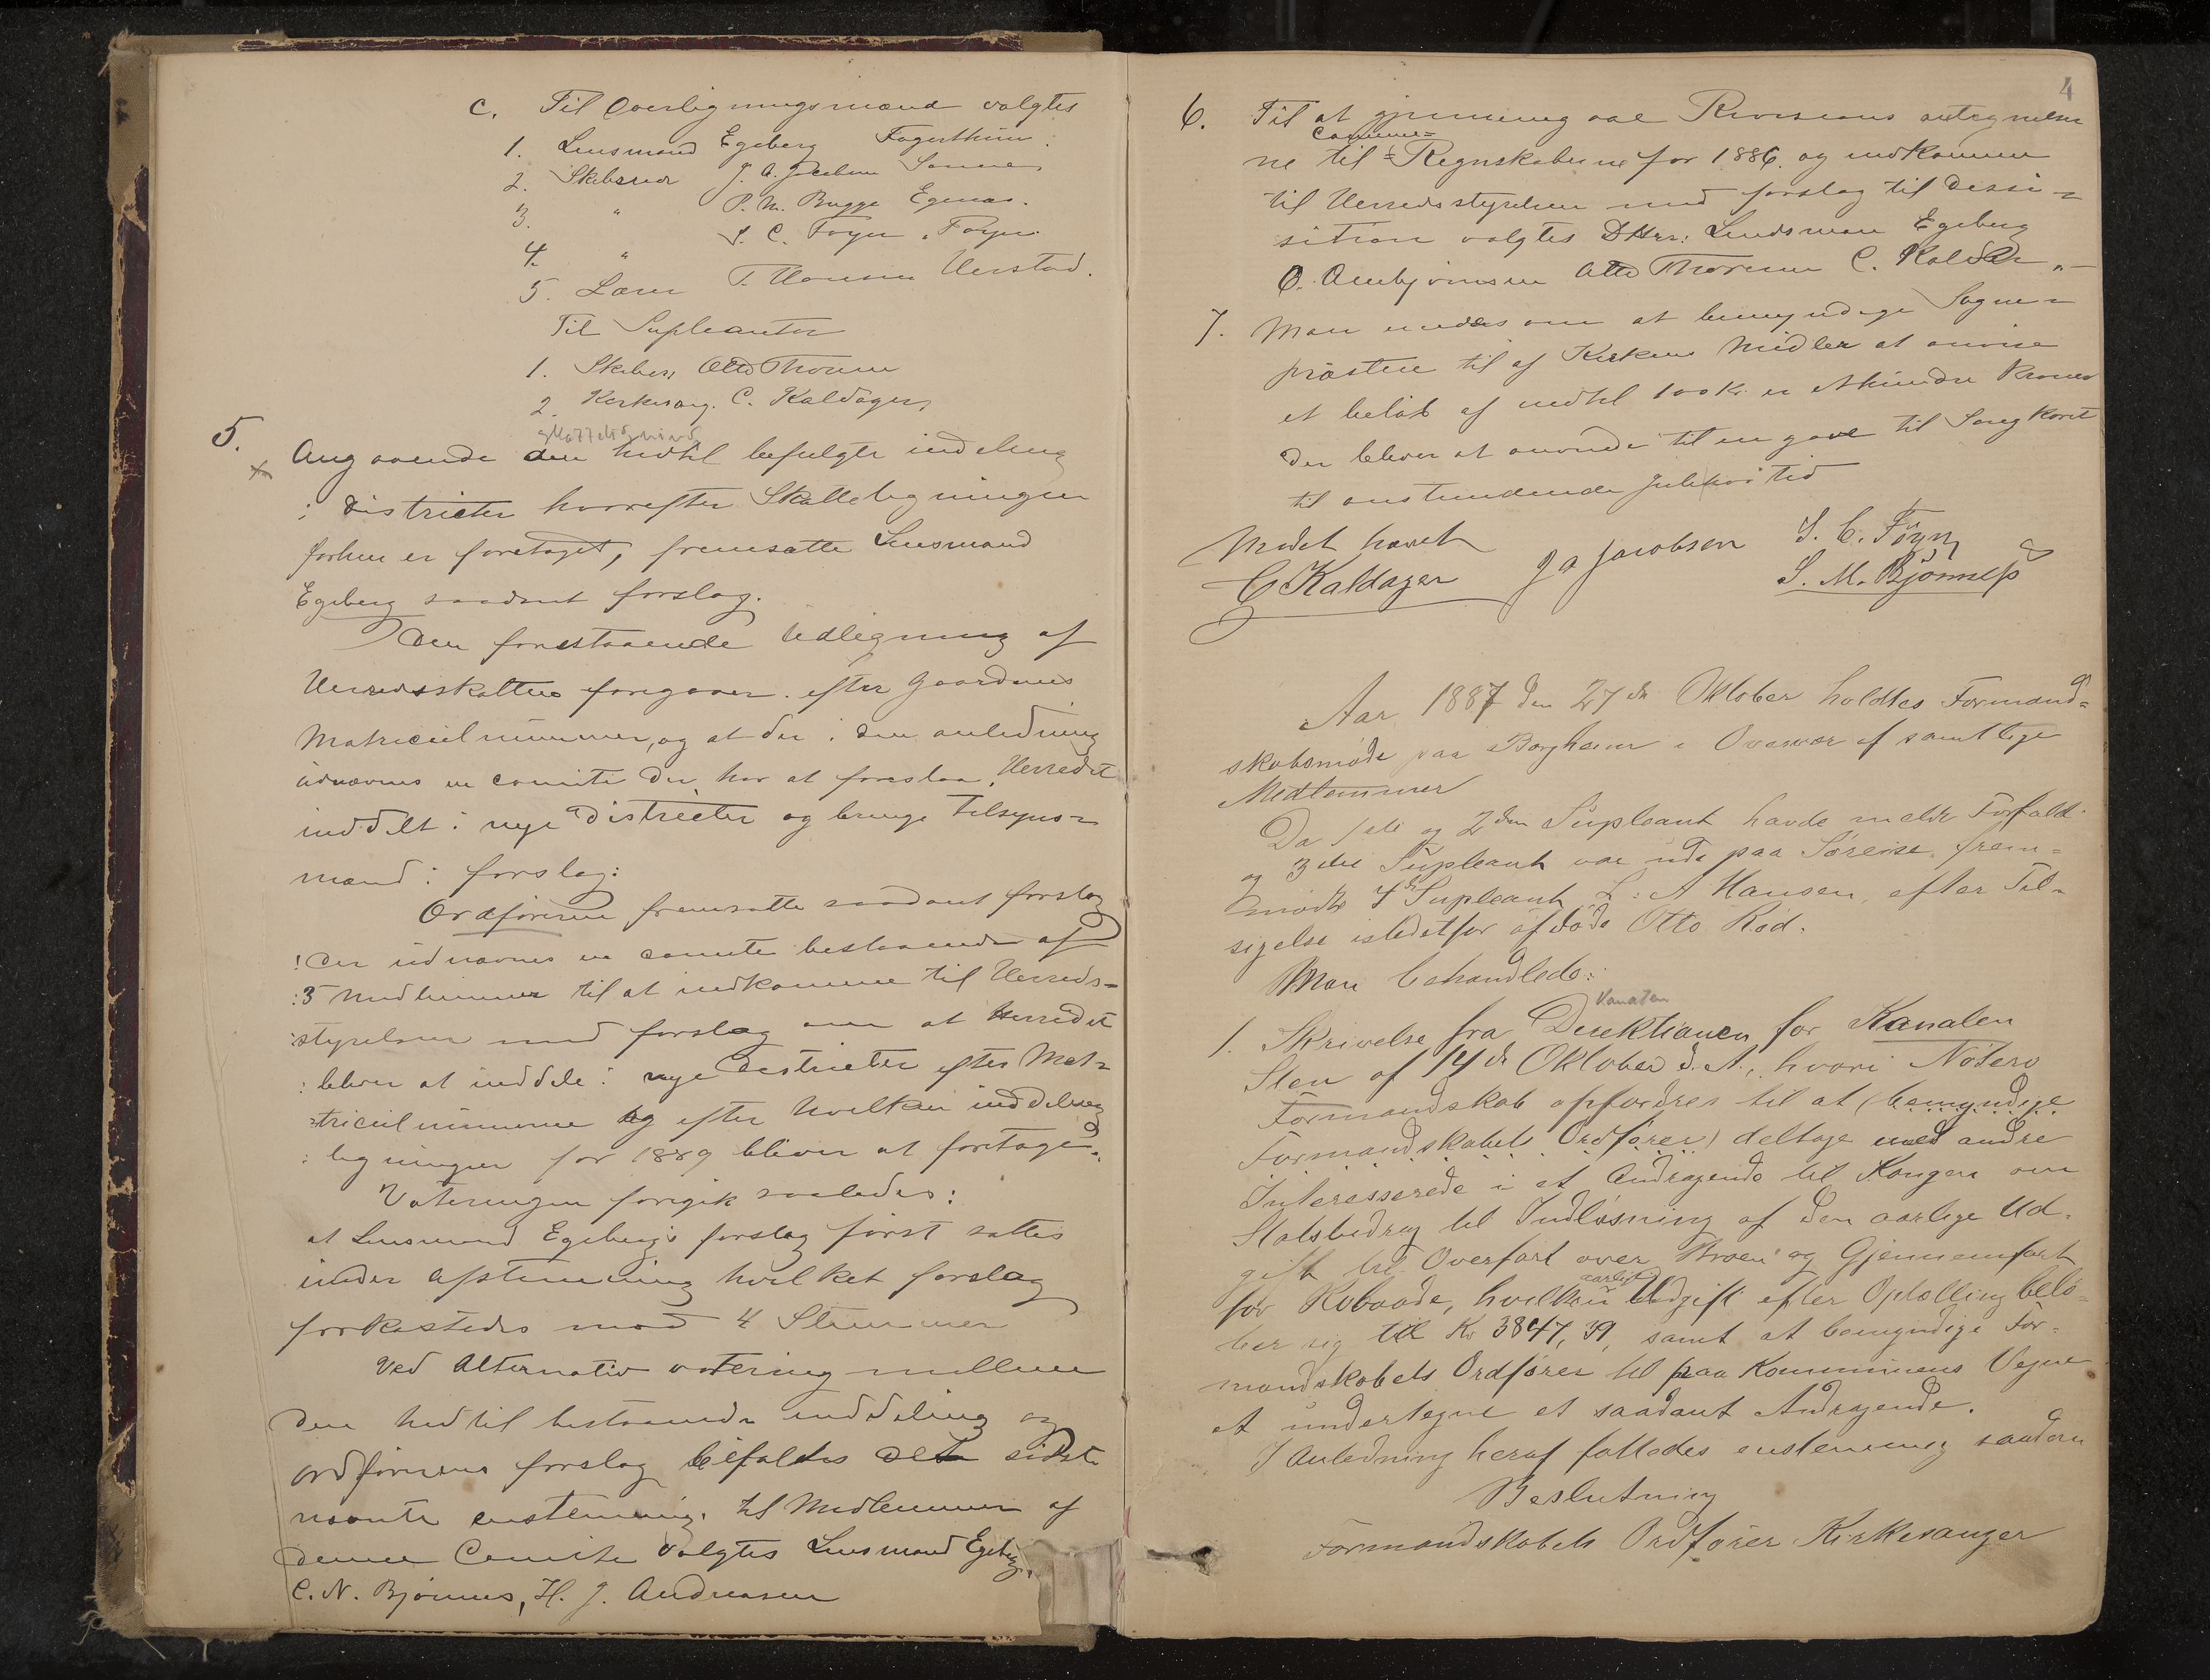 c. Til Overligningsmænd valgtes
1. Lensmand Egeberg Fagertheim
2. Skibsreder J. A. Jacobsen
3. " P. M. Bugge Egenæs.
4. " S. C. Foyn, Foyn
5. Lærer T. Hansen Herstad.
Til Supleanter
1. Skibsr. Otto Thoresen
2. Kirkesang. C. Kaldager,
5.
Angaaende den hidtil befulgte inddeling
i districter hvorefter Skatteligningen
forhen er foretaget, fremsatte Lensmand
Egeberg saadant forslag.
Den forestaaende Udligning af
Herredsskatten foregaaer efter Gaardenes
Matriculnummer, og at der i den anledning
udnævnes en comite der har at foreslaa Herredet
inddelt i nye districter og bringe tilsyns-
mænd i forslag:
Ordføreren fremsatte saadant forslag
Der udnævnes en comite bestaaende af
3 Medlemmer til at indkomme til Herreds-
styrelsen med forslag om at Herredet
bliver at inddele i nye districter efter Mat-
triculnummerne og efter hvilken inddeling
ligningen for 1889 bliver at foretage.
Voteringen foregik saaledes:
at Lensmand Egebergs forslag først sattes
under afstemning hvilket forslag
forkastedes mod 4 Stemmer
Ved Alternativ votering mellem
den hidtil bestaaende inddeling og
ordførerens forslag bifaldtes det sidst-
nævnte enstemmig. til Medlemmer af
denne Comite valgtes Lensmand Egeberg,
C. N. Bjønnes, H. J. Andreasen
4
6. Til at gjennemgaae Revisions antegnelser
Comune-
ne til Regnskaberne for 1886. og indkomme
til Herredsstyrelsen med forslag til Desi-
sition valgtes DHrr: Lensman Egeberg
O. Arnbjørnsen Otto Thoresen C. Kaldager
7. Man enedes om at bemyndige Sogne-
præsten til af Kirkens Midler at anvise
et beløb af indtil 100 Kr. et hundre Kroner
der bliver at anvende til en gave til Sangkoret
til anstundende julehøitid
Mødet hævet
C Kaldager J A Jacobsen S. C. Föyn
S. M. Bjønness
Aar 1887 den 27de Oktober holdtes Formand-
skabsmøde paa Borgheim af samtlige
Medlemmer
Da 1ste og 2den Supleant havde meldt Forfald
og 3die Supleant var ude paa Søreise, frem-
mødte 4de Supleant L. A Hansen, efter Til-
sigelse istedetfor afdøde Otto Rød.
Man behandlede:
Kanalen
1. Skrivelse fra Direktionen for Kanalen
Sten af 14de Oktober d. A., hvori Nøterø
Formandskab opfordres til at (bemyndige
Formandskabets Ordfører) deltage med andre
Interesserede i et Andragende til Kongen om
Statsbidrag til Indløsning af den aarlige Ud-
gift til Overfart over Broen og Gjennemfart
aarlige
for Robaade, hvilken Udgift efter Optælling belø-
ber sig til Kr 3847,39, samt at bemyndige For-
mandskabets Ordfører til paa Kommunens Vegne
at undertegne et saadant Andragende.
I Anledning heraf fattedes enstemmig saadan
Beslutning
Formandskabets Ordfører Kirkesanger